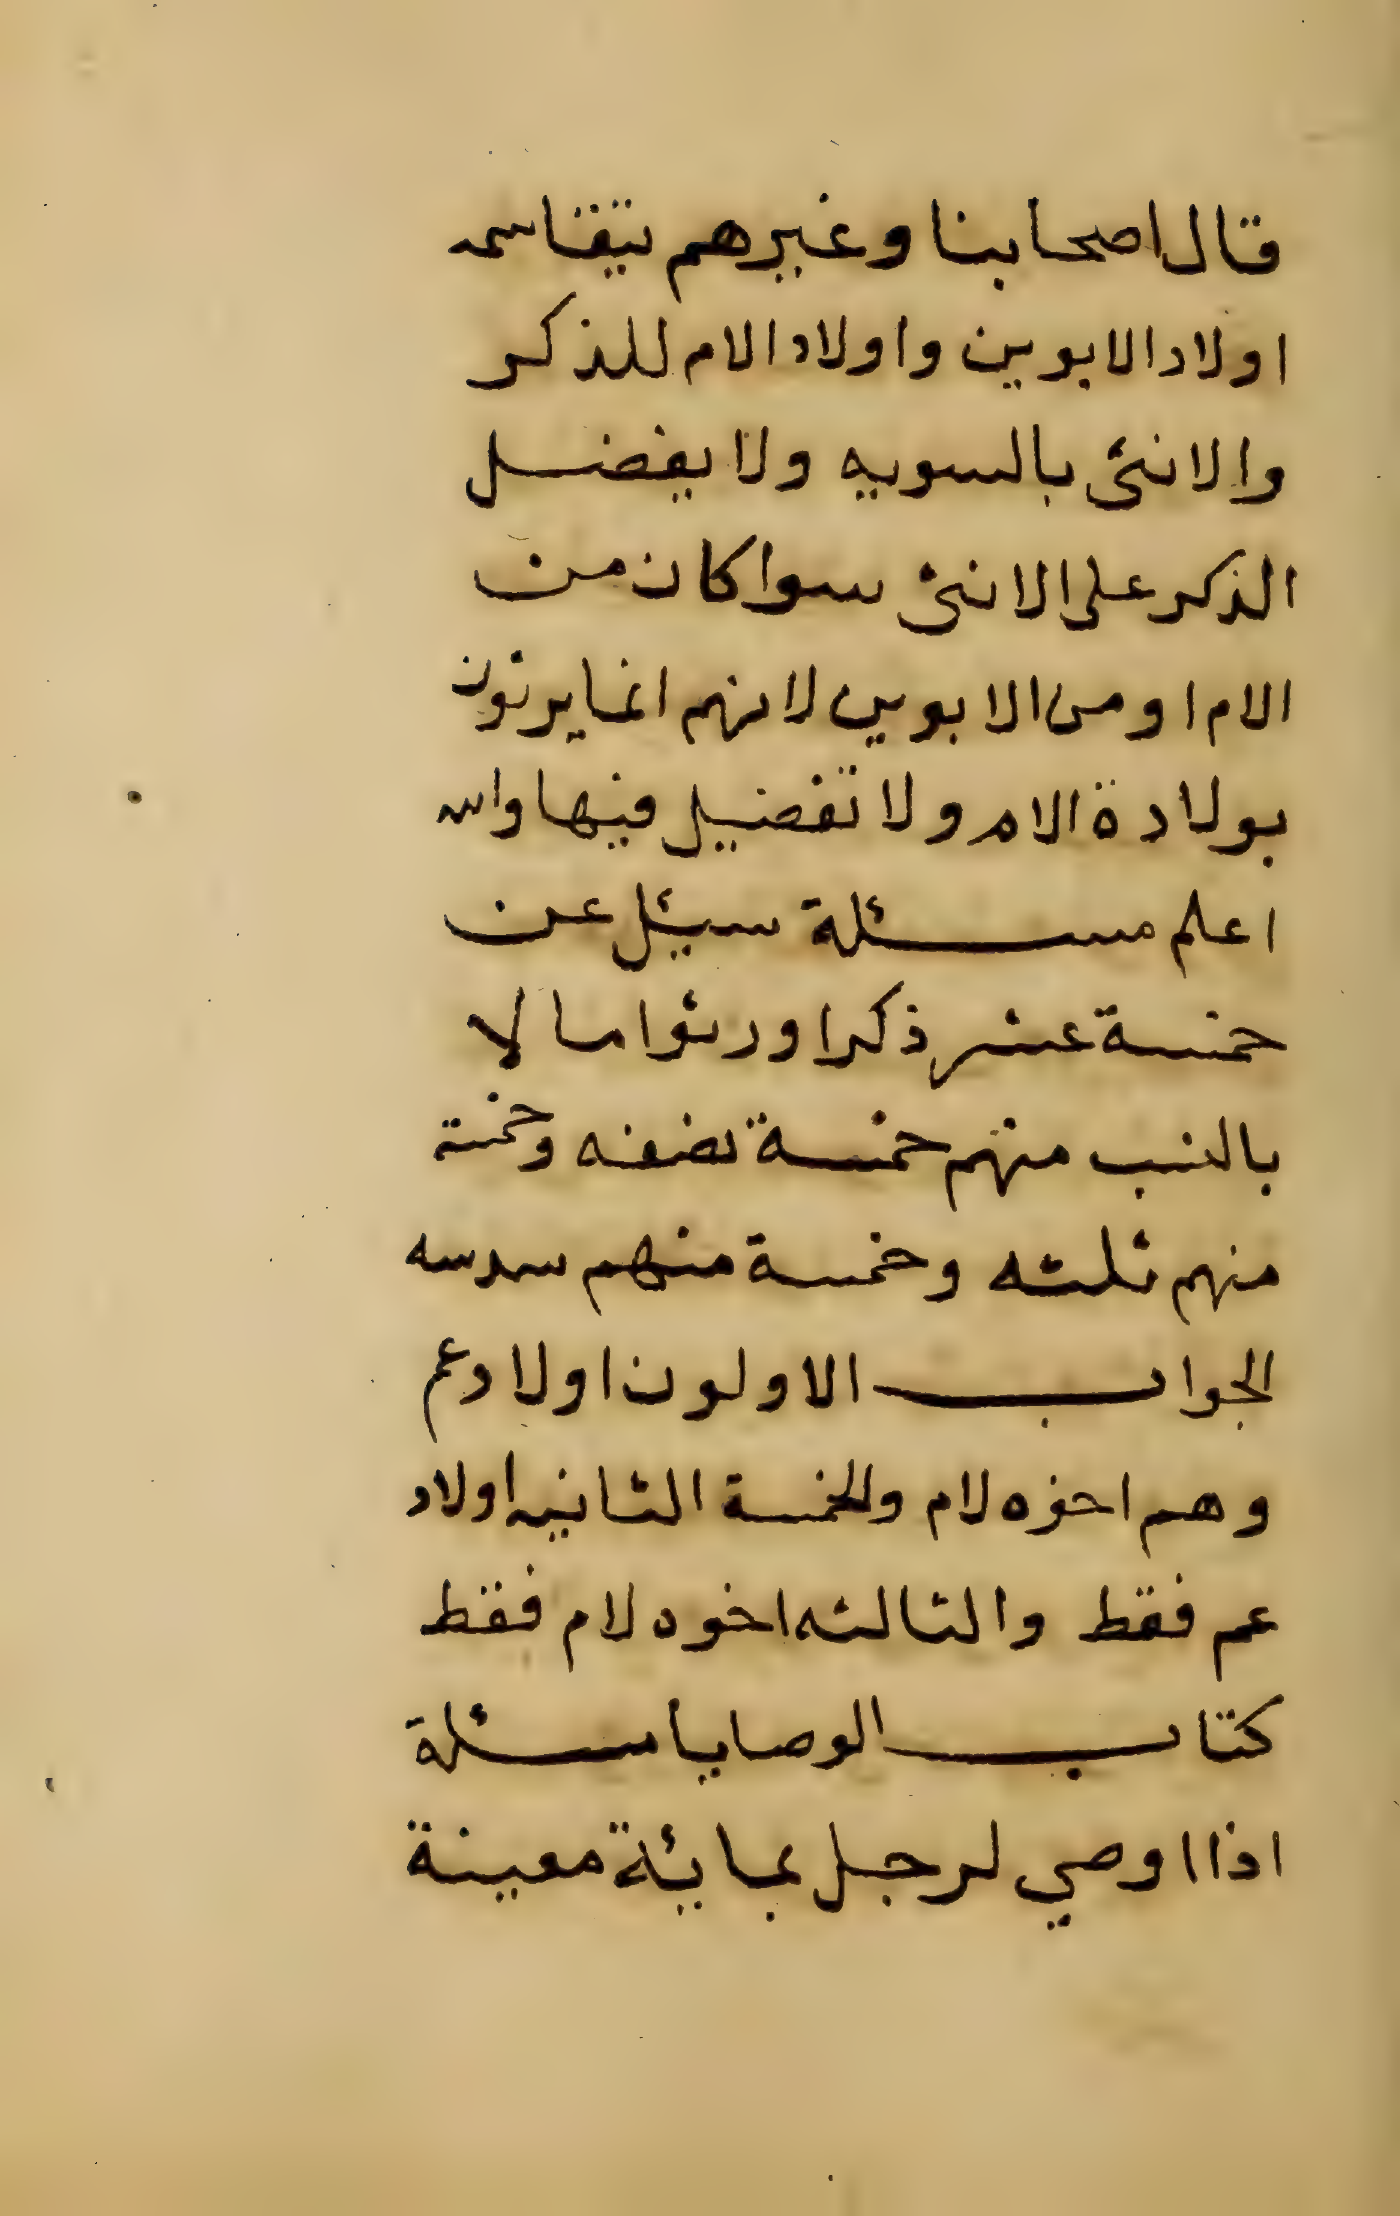 قال اصحابنا وغيرهم يتقاسمه
اولاد الابوين واولاد الام للذكر
والانثى بالسويه ولا يفضل
الذكر على الانثى سوا كان من
الام او من الابوين لانهم انما يرثون
بولادة الام ولا تفضيل فيها والله
اعلم مسئلة سيئل عن
خمسة عشر ذكرا ورثوا مالا
بالنسب منهم خمسة نصفه وخمسة
منهم ثلثه وخمسة منهم سدسه
الجواب الاولون اولاد عم
وهم اخوه لام والخمسة الثانيه اولاد
عم فقط والثالثه اخوه لام فقط
كتاب الوصايا مسئلة
اذا اوصي لرجل بمايئة معينة